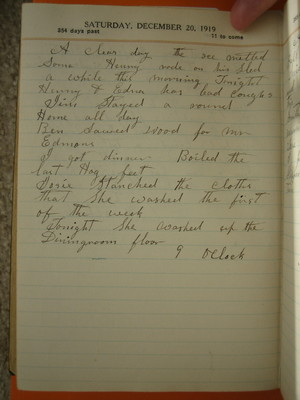 SATURDAY, DECEMBER 20, 1919
354 days past 11 to come
A Clear day the ice melted
Some Henry rode on his Sled
a while this morning Tonight
Henry & Edna has bad Coughs
Stayed a round
Home all day
Ben Sawed Wood for Mr
Edmons
I got dinner Boiled the
last Hog feet
Starched the Clothes
that She washed the first
of the week
Tonight She washed up the
Diningroom floor
9 OClock